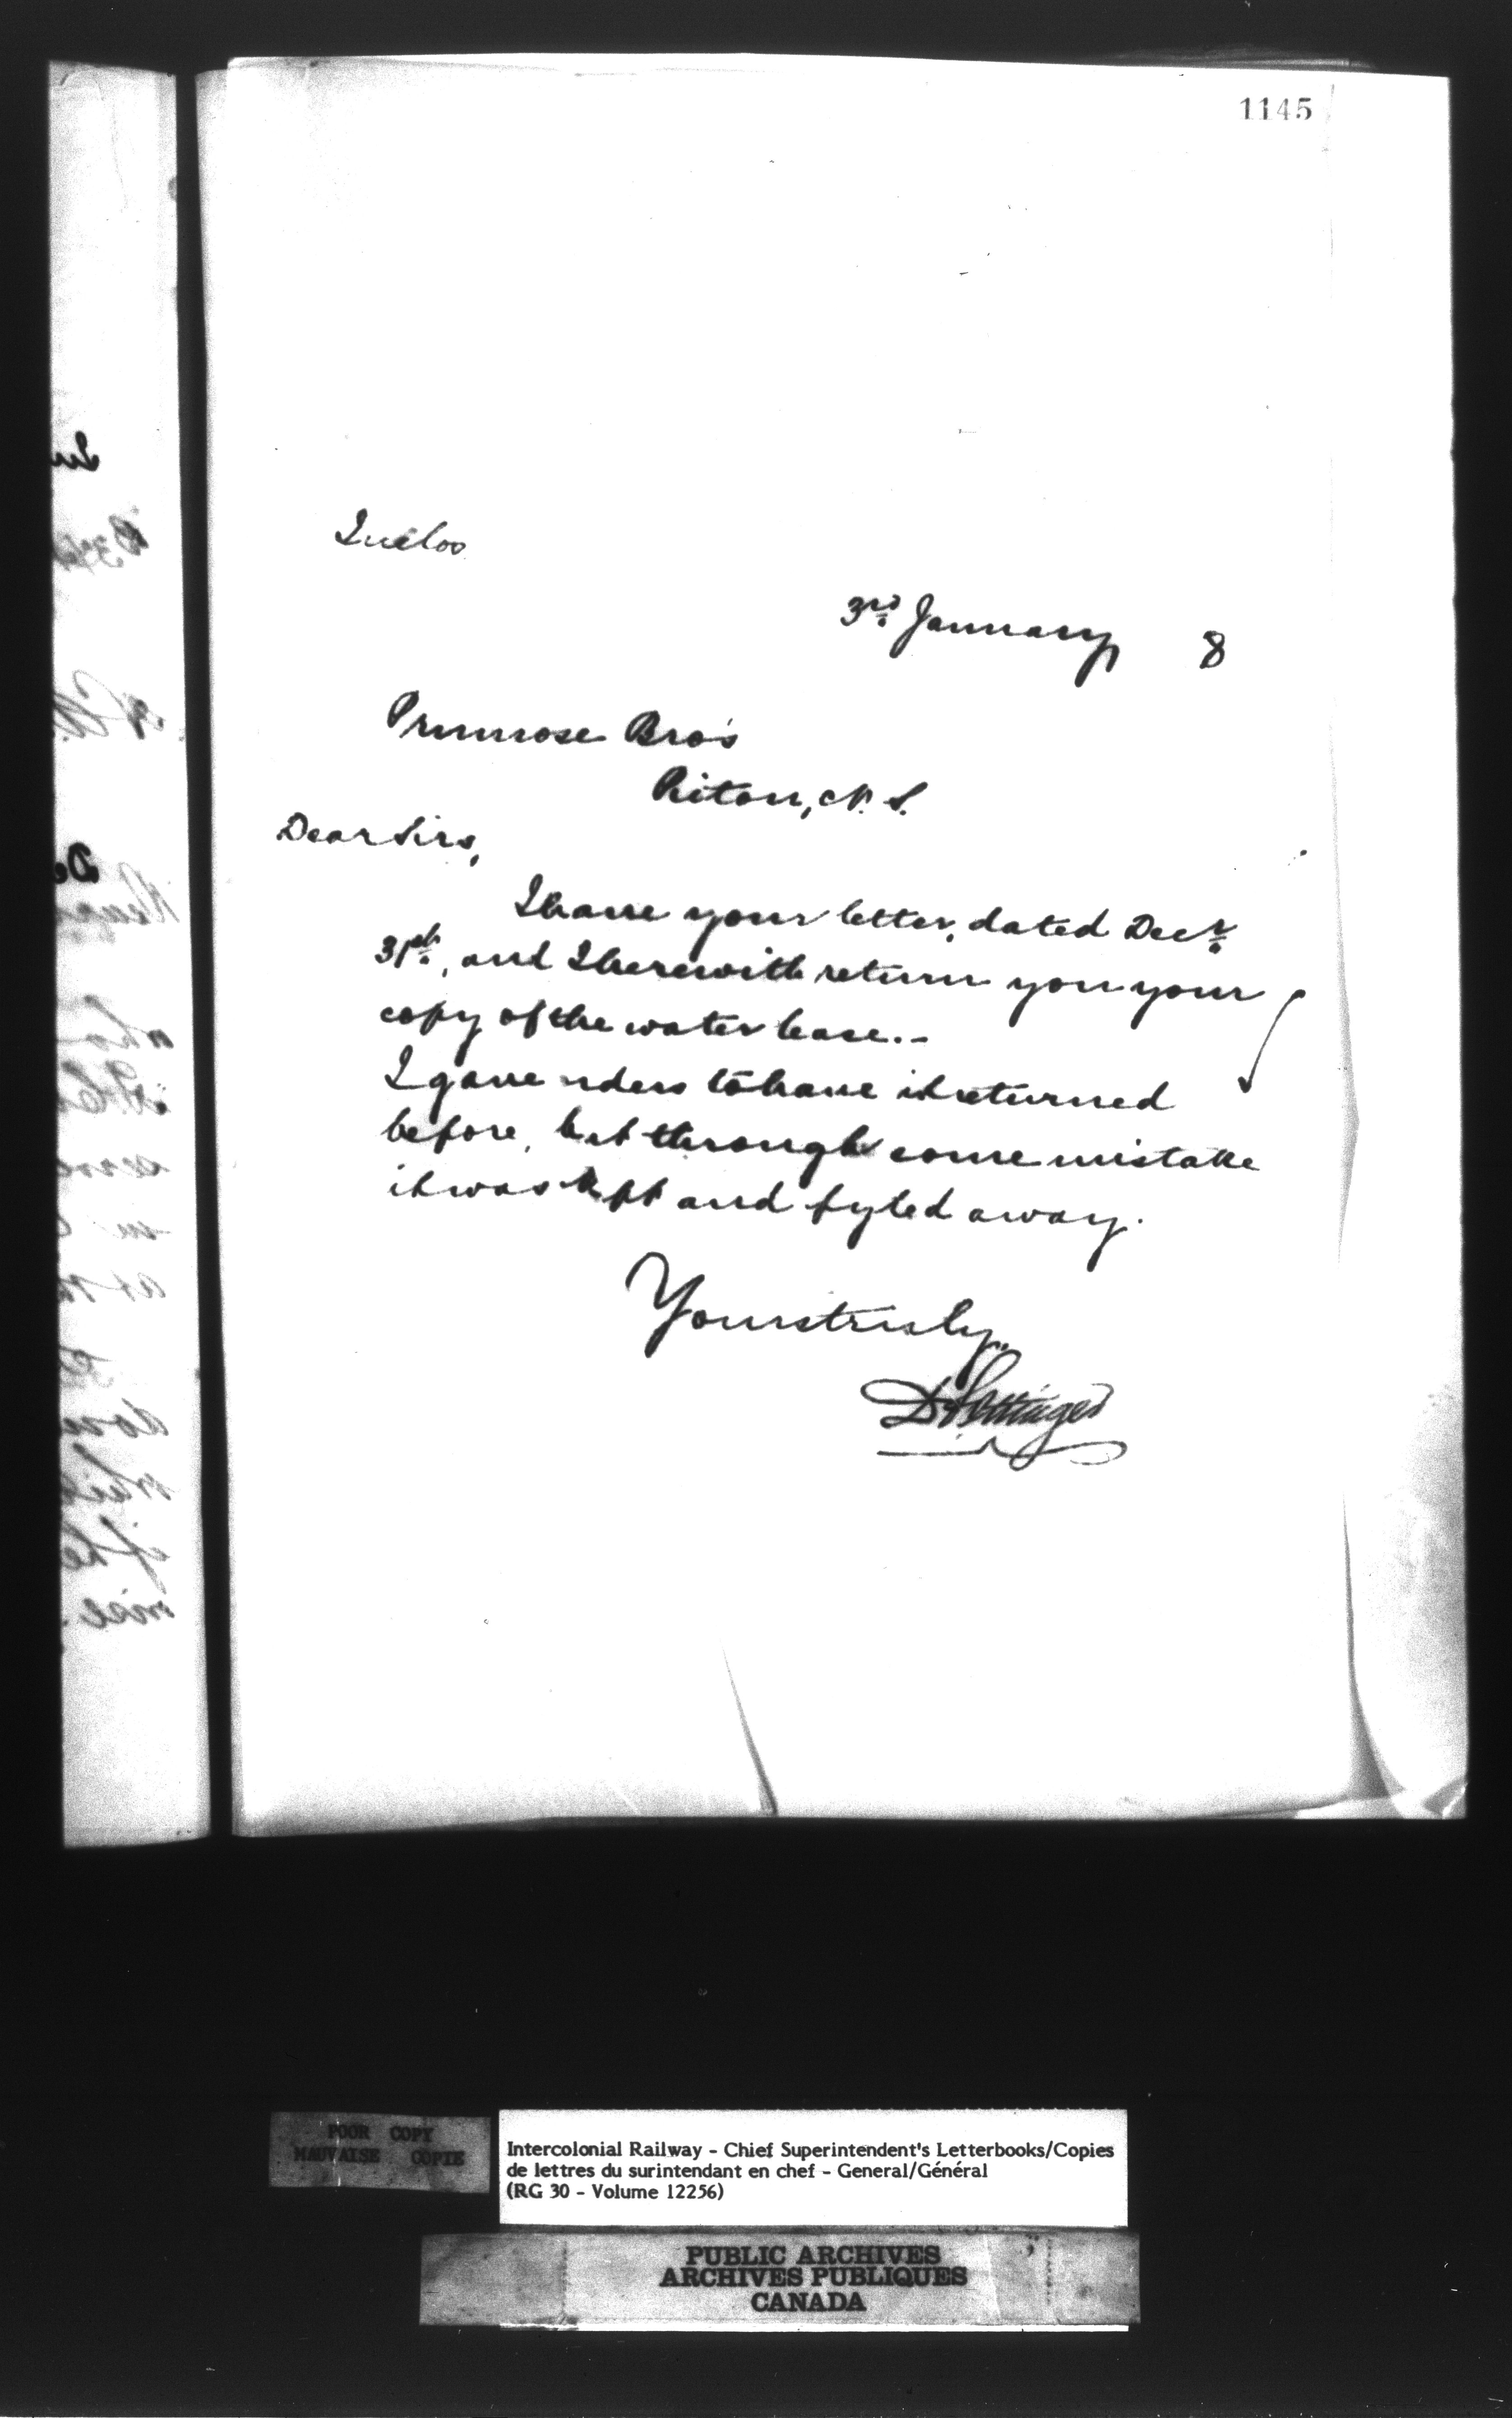 1145
Inclos
3rd January 8
Primrose Bro's
Pictou, N.S.
Dear Sirs,
I have your letter, dated Decr
31st, and I herewith return you your
copy of the water lease.-
I gave orders to have it returned
before, but through some mistake
it was kept and fyled away.
Yours truly,
D Pottinger
POOR COPY
MAUVAISE COPIE
Intercolonial Railway - Chief Superintendent's Letterbooks/Copies
de lettres du surintendant en chef - General/Général
(RG 30 - Volume 12256)
PUBLIC ARCHIVES
ARCHIVES PUBLIQUES
CANADA